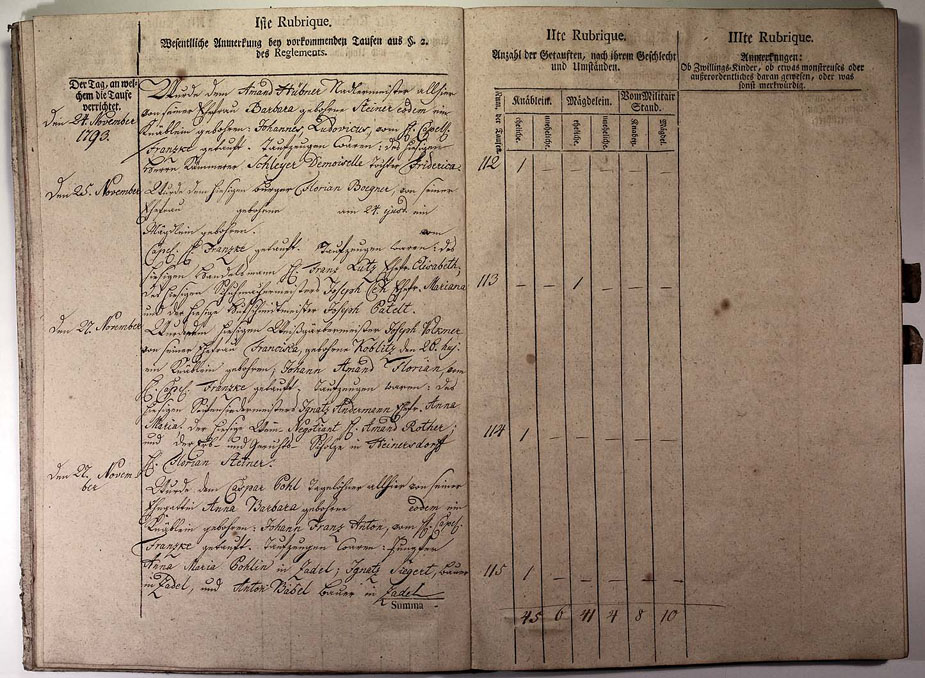 Iste Rubrique.
Wesentliche Anmerkung bey vorkommenden Taufen aus §. 2.
des Reglements.
Der Tag, an wel-
chem die Taufe
verrichtet.
den 24. November
1793.
Wurde dem Amand Hübner allhier
von seiner Ehefrau Barbara gebohrne Steiner eodem ein
Knäblein gebohren: Johannes, Ludovicus, vom H. Capell.
Franzke getauft. Taufzeugen waren: des hiesigen
Herrn Kämmerer Schleyer Demoiselle Tochter Friderica.
den 25. November
Wurde dem hiesigen Bürger Florian Boegner, von seiner
Ehefrau gebohrne am 24. ein
Mägdlein gebohren. vom
Capel. H. Franzke getauft. Taufzeugen waren: des
hiesigen Handelsmann H. Franz Lutz Ehefr. Elisabeth,
des hiesigen Joseph Ehefr. Mariana
und der hiesige Joseph Patelt.
den 27. November
Wurde dem hiesigen Weißgärbermeister Joseph Volkmer
von seiner Ehefrau Franciska, gebohrne Koblitz den 26. huj.
ein Knäblein gebohren; Johann Amand Florian, vom
H. Capel. Franzke getauft; Taufzeugen waren: des
hiesigen Seifensiedermeisters Ignatz Andermann Ehefr. Anna
Maria; der hiesige Wein-Negotiant H. Amand Rother;
und der Erb- und Gerichts-Scholze in Heinersdorff
H. Florian Stetner.
den 27. Novem
ber
Wurde dem Caspar Pohl Tagelöhner allhier von seiner
Ehegattin Anna Barbara gebohrne eodem ein
Knäblein gebohren: Johann Franz Anton, vom H. Capel.
Franzke getauft. Taufzeugen waren: Jungfer
Anna Maria Pohlin in Zadel; Ignatz Siegert, Bauer
in Zadel, und Anton Bäbel Bauer in Zadel
Summa
IIte Rubrique.
Anzahl der Getauften, nach ihrem Geschlecht
und Umständen.
Num. der Taufen
Knäblein. Mägdelein. Vom Militair
Stand.
eheliche. uneheliche. eheliche. uneheliche. Knaben. Mägdel.
112 1 – – – – –
113 – – 1 – – –
114 1 – – – – –
115 1 – – – – –
45 6 41 4 8 10
IIIte Rubrique.
Anmerkungen:
Ob Zwillings-Kinder, ob etwas monstreuses oder
außerordentliches daran gewesen, oder was
sonst merkwürdig.